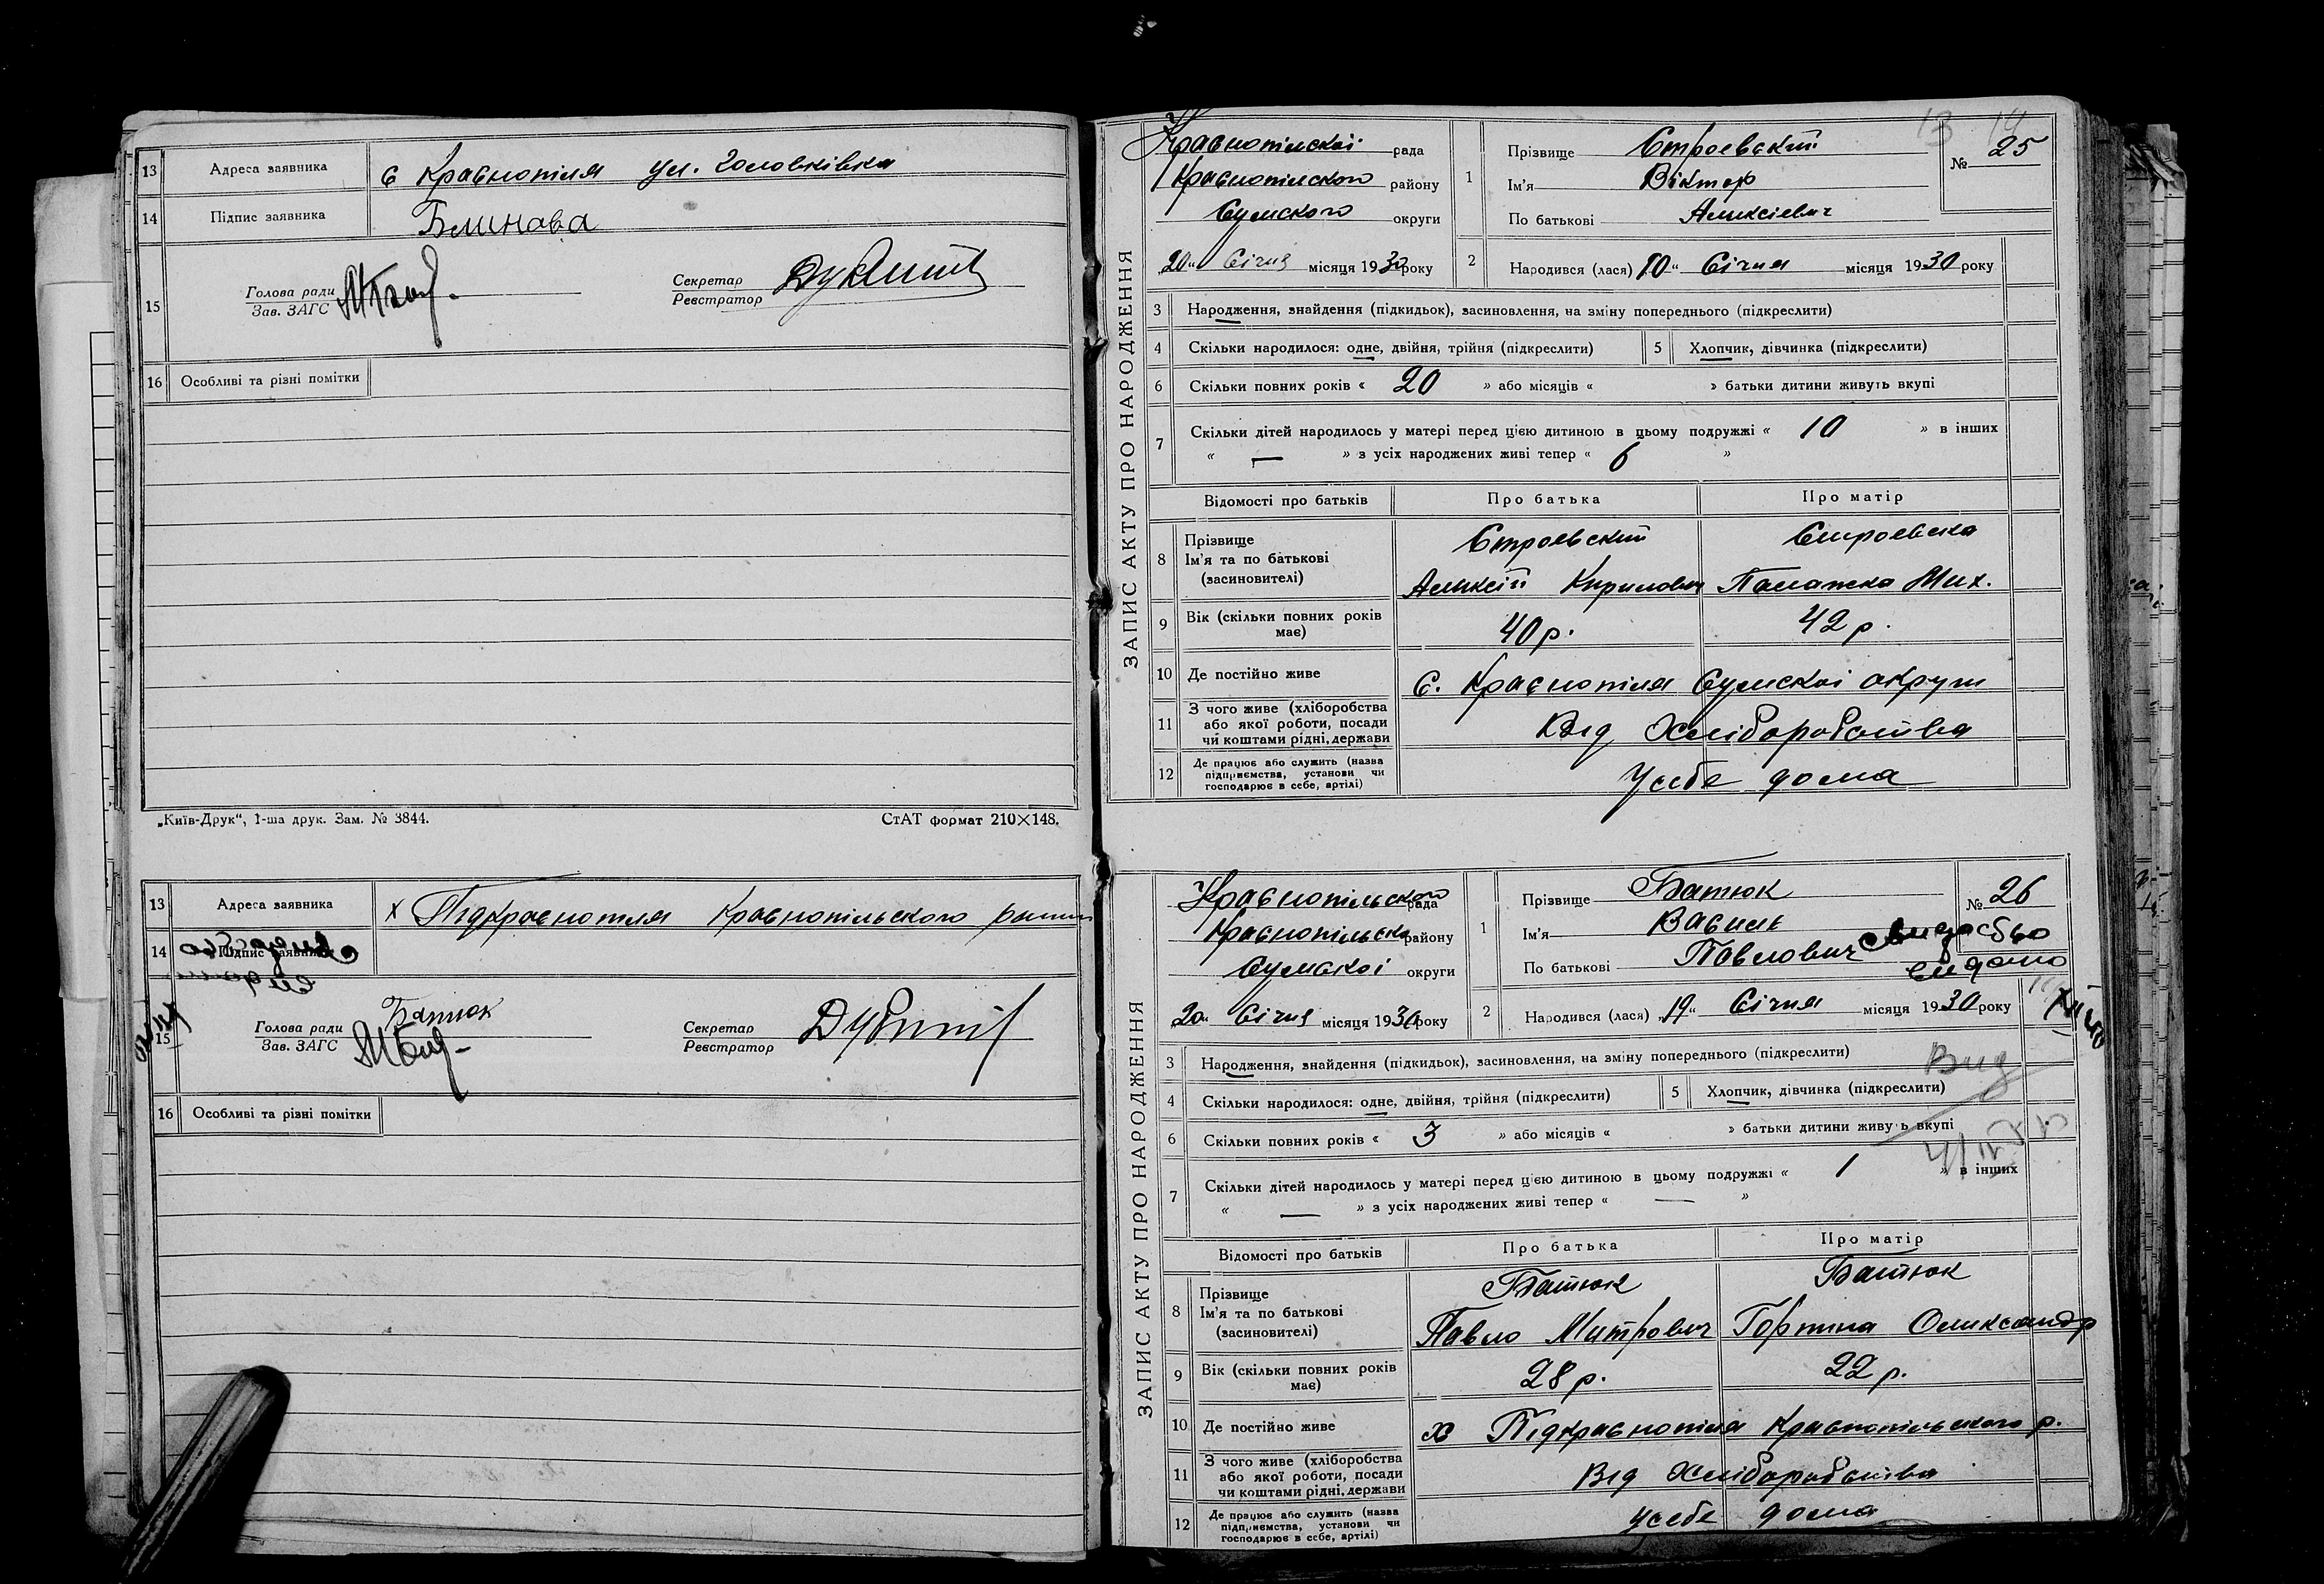 13 Адреса заявника с Краснопілля ул. Головківка
14 Підпис заявника Блинова
15 Голова ради
Зав. ЗАГС
Секретар
Реєстратор
16 Особливі та різні помітки
„Київ-Друк“, 1-ша друк. Зам. № 3844. СтАТ формат 210×148.
13 Адреса заявника х Підкраснопілля Краснопільського
14 Підпис заявника
Батюк
15 Голова ради
Зав. ЗАГС
Секретар
Реєстратор
16 Особливі та різні помітки
13 14
ЗАПИС АКТУ ПРО НАРОДЖЕННЯ
Краснопілскої рада
Краснопілского району
Сумского округи
„20“ Січня місяця 1930 року
1 Прізвище Строевский
№ 25
Ім'я Віктор
По батькові Аликсієвич
2 Народився (лася) 10“ Січня місяця 1930 року
3 Народження, знайдення (підкидьок), засиновлення, на зміну попереднього (підкреслити)
4 Скільки народилося: одне, двійня, трійня (підкреслити) 5 Хлопчик, дівчинка (підкреслити)
6 Скільки повних років « 20 » або місяців « » батьки дитини живуть вкупі
7 Скільки дітей народилось у матері перед цією дитиною в цьому подружжі « 10 » в інших
« — » з усіх народжених живі тепер « 6 »
Відомості про батьків Про батька Про матір
8 Прізвище
Ім'я та по батькові
(засиновителі)
Строевский Строевска
Аликсій Кирилович Палажка Мих.
9 Вік (скільки повних років має) 40 р. 42 р.
10 Де постійно живе С. Краснопілля Сумскої округи
11 З чого живе (хліборобства
або якої роботи, посади
чи коштами рідні, держави
Від Хліборобства
12 Де працює або служить (назва
підприємства, установи чи
господарює в себе, артілі)
Усебе дома
ЗАПИС АКТУ ПРО НАРОДЖЕННЯ
Краснопільского рада
Краснопільско району
Сумскої округи
20“ Січня місяця 1930 року
1 Прізвище Батюк
№ 26
Ім'я Василь
По батькові Павлович
2 Народився (лася) „19“ Січня місяця 1930 року
3 Народження, знайдення (підкидьок), засиновлення, на зміну попереднього (підкреслити)
4 Скільки народилося: одне, двійня, трійня (підкреслити) 5 Хлопчик, дівчинка (підкреслити)
6 Скільки повних років « 3 » або місяців « » батьки дитини живуть вкупі
7 Скільки дітей народилось у матері перед цією дитиною в цьому подружжі « 1 » в інших
« — » з усіх народжених живі тепер « — »
Відомості про батьків Про батька Про матір
8 Прізвище
Ім'я та по батькові
(засиновителі)
Батюк Батюк
Павло Митрович Горпина Олександр
9 Вік (скільки повних років має) 28 р. 22 р.
10 Де постійно живе х Підкраснопілля Краснопільского р.
11 З чого живе (хліборобства
або якої роботи, посади
чи коштами рідні, держави
Від Хліборобства
12 Де працює або служить (назва
підприємства, установи чи
господарює в себе, артілі)
усебе дома